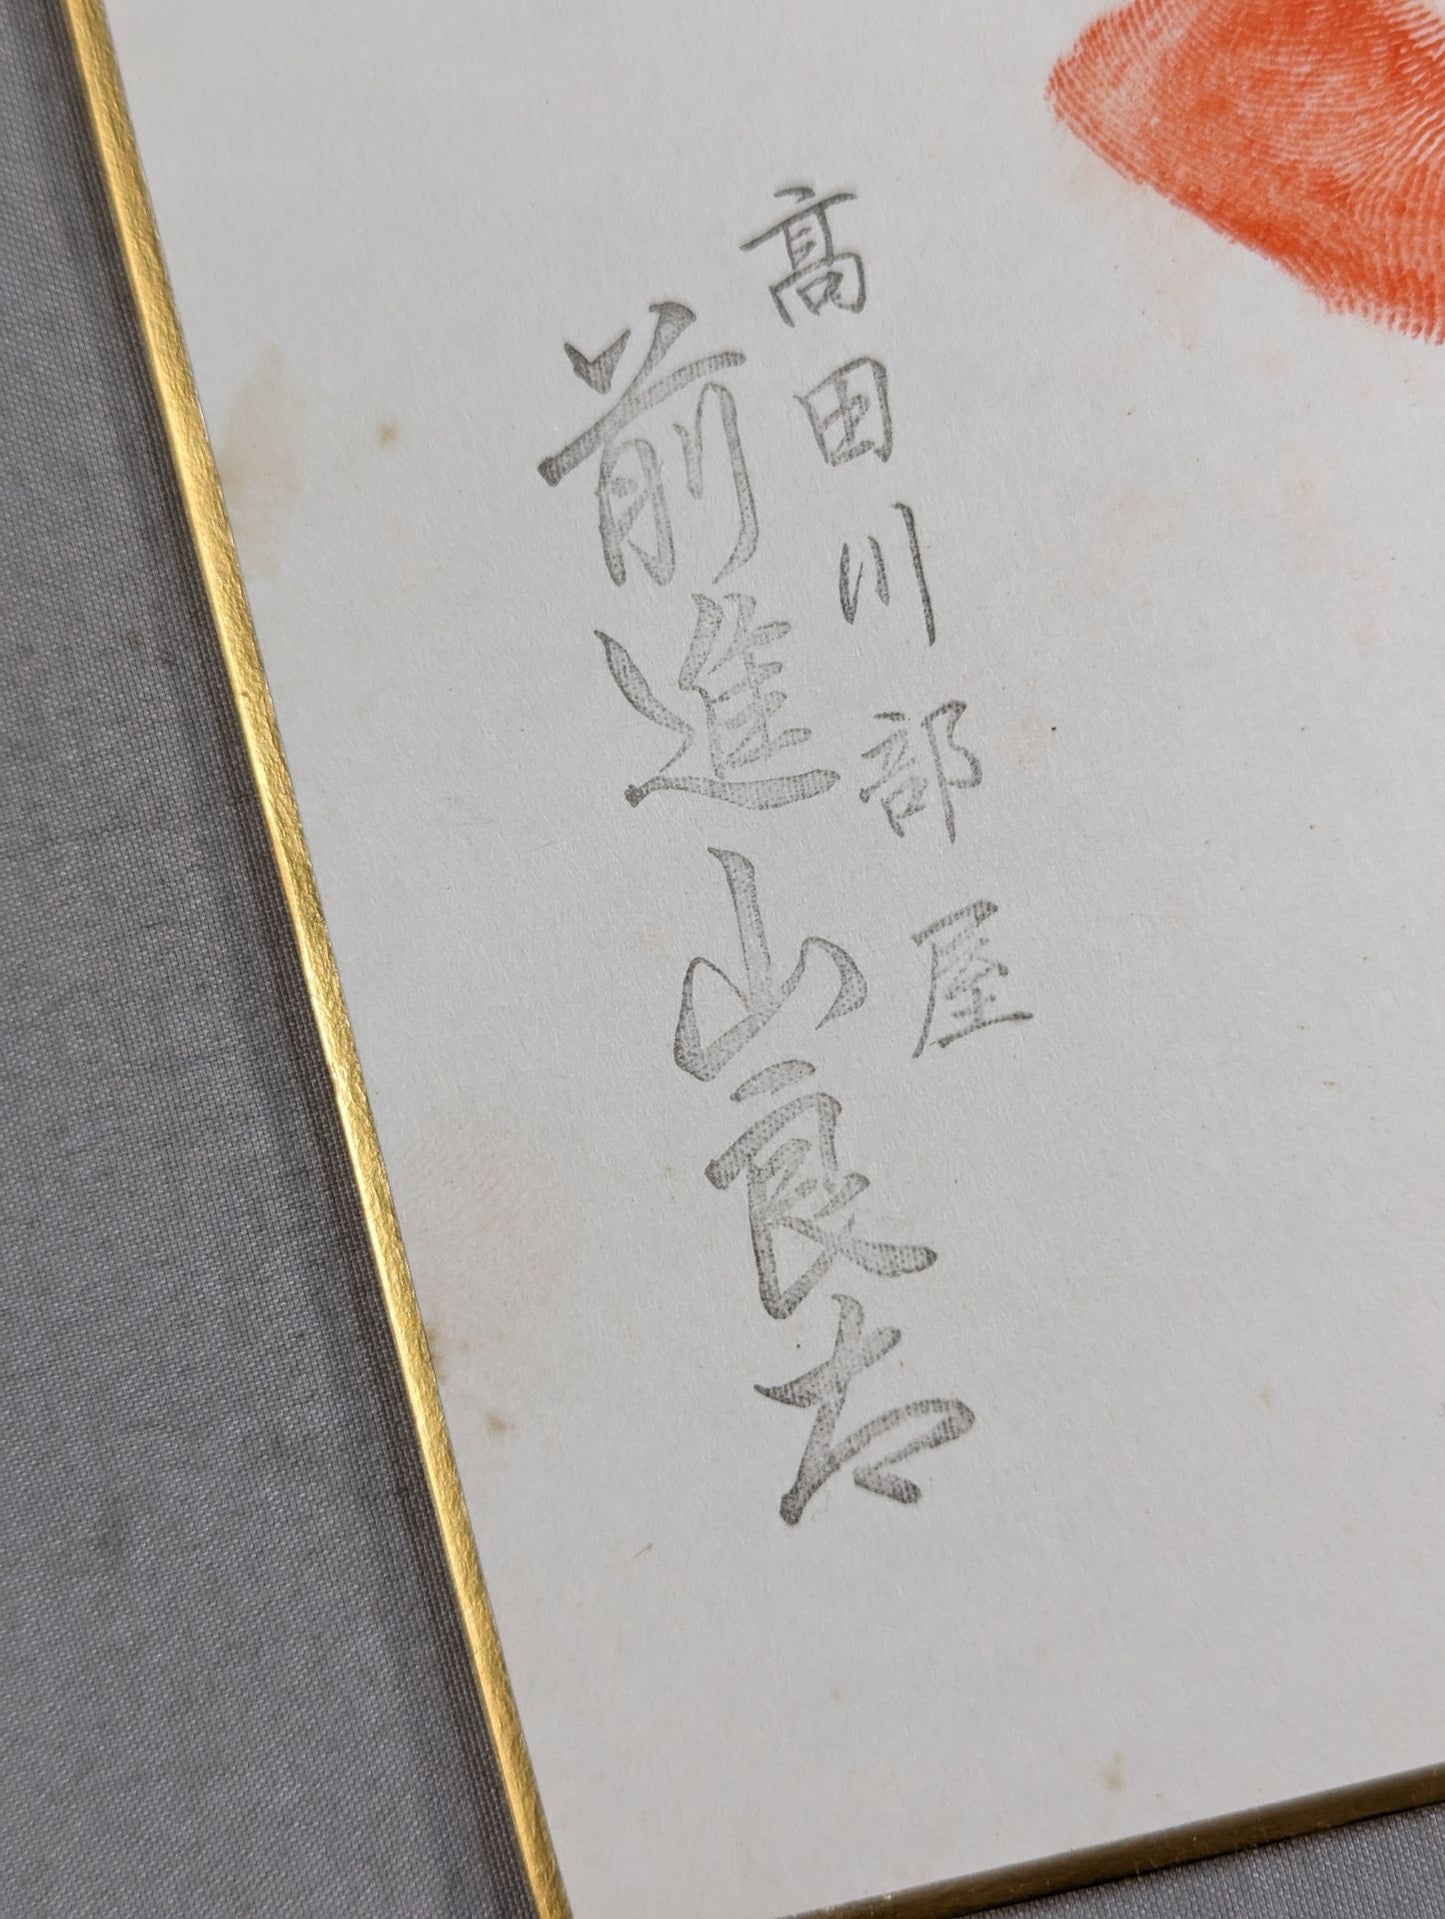 高田川部屋
前進山良太